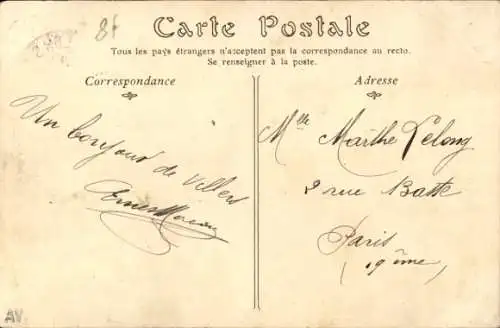 8f
Carte Postale
Tous les pays étrangers n'acceptent pas la correspondance au recto.
Se renseigner à la poste.
Correspondance
Adresse
Un bonjour de Villers
Ernest Moreau
Mlle Marthe Lelong
2 rue Batte
Paris
(9ème)
AV